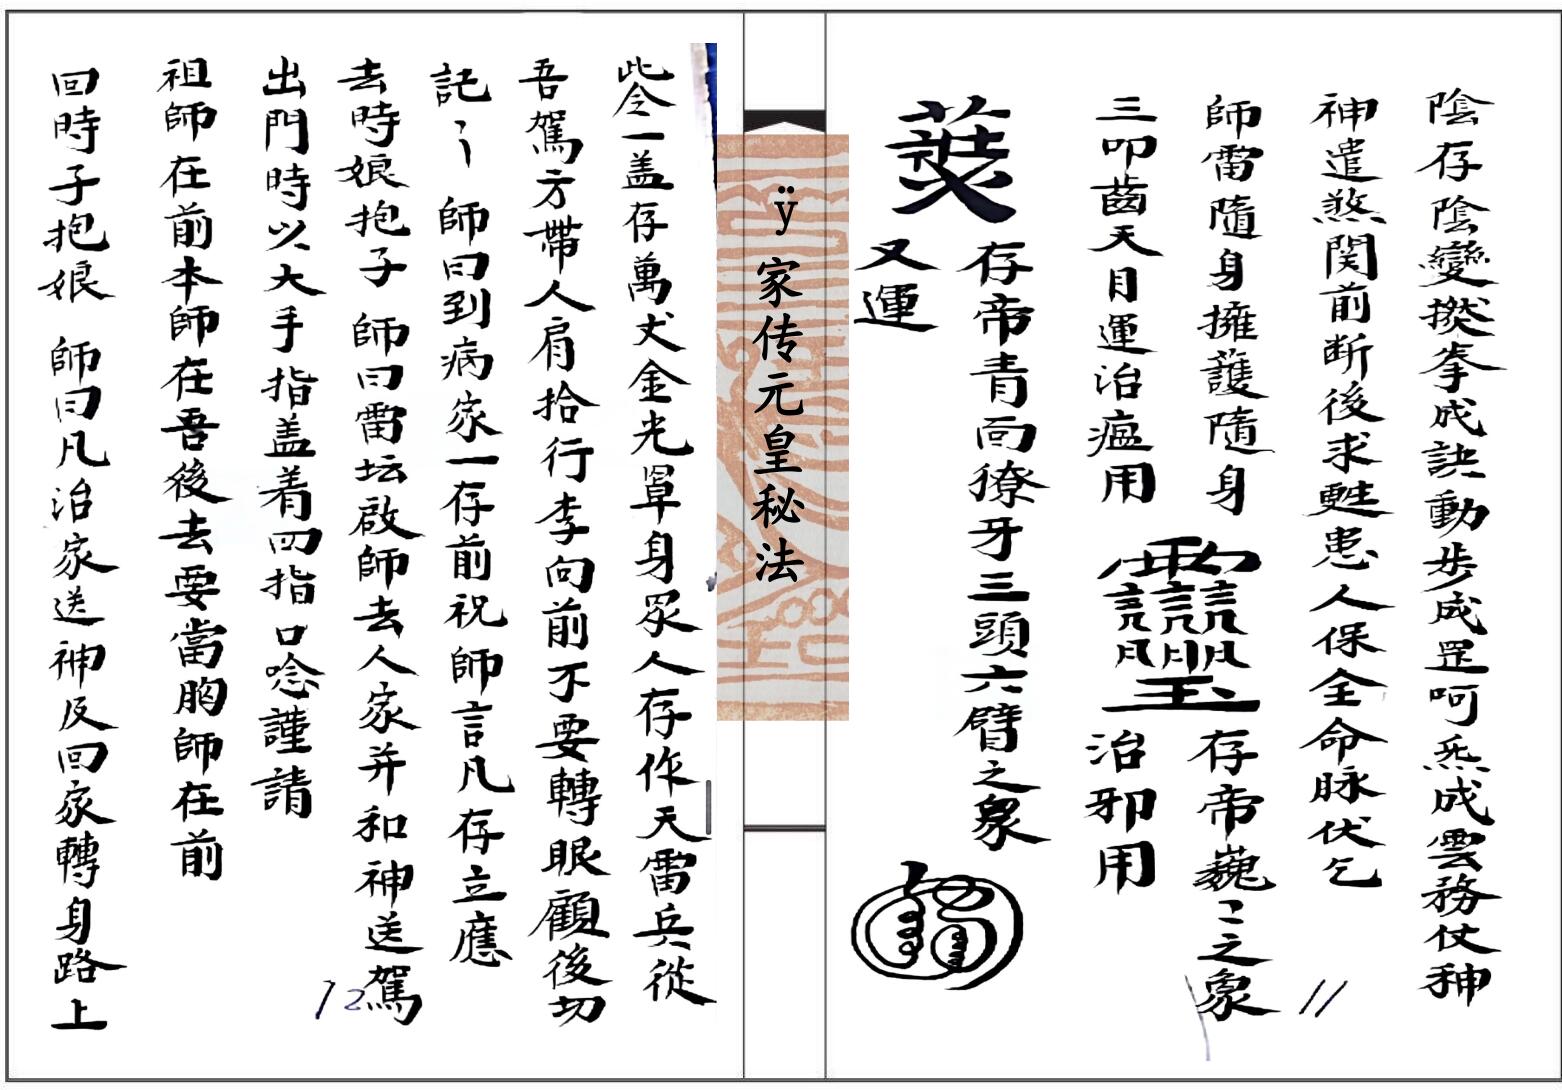 陰存陰變揆拳成訣動步成罡呵炁成雲務仗神
神遣煞関前断後求甦患人保全命脉伏乞
師雷隨身擁護隨身
三叩齒天目運治瘟用
存帝巍〻之象
治邪用
存帝青面獠牙三頭六臂之象
又運
11
ÿ家传元皇秘法
此令一盖存萬丈金光罩身眾人存作天雷兵從
吾駕方帶人肩拾行李向前不要轉眼顧後切
記〻 師曰到病家一存前祝師言凡存立應
去時娘抱子 師曰雷坛啟師去人家并和神送駕
出門時以大手指盖着四指口唸謹請
祖師在前本師在吾後去要當胸師在前
回時子抱娘 師曰凡治家送神反回家轉身路上
12